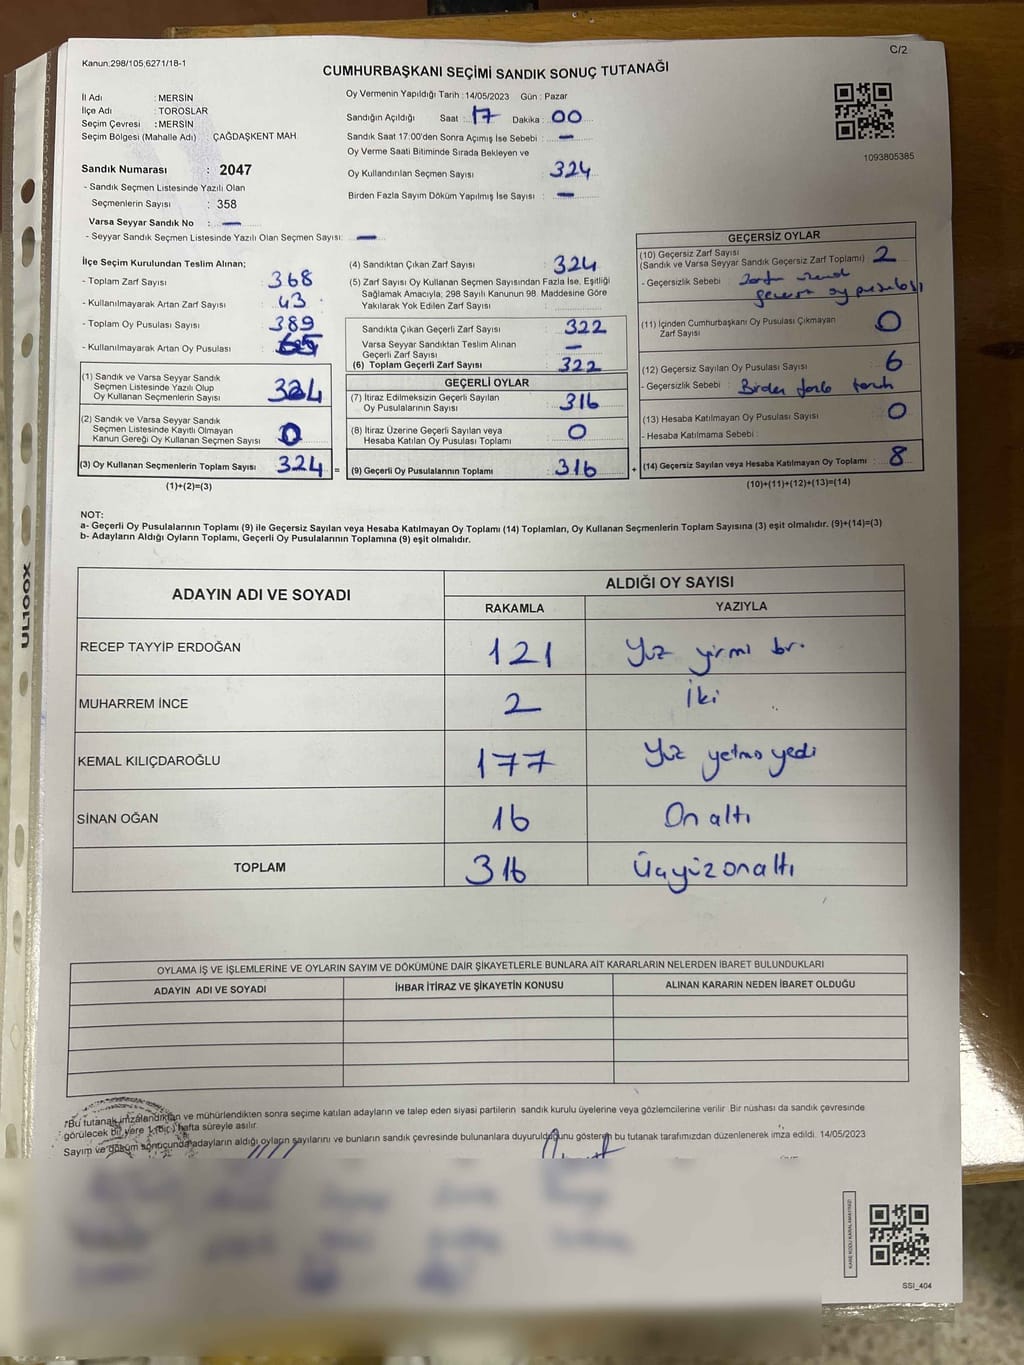 C/2
Kanun:298/105;6271/18-1
CUMHURBAŞKANI SEÇİMİ SANDIK SONUÇ TUTANAĞI
İl Adı : MERSİN
İlçe Adı : TOROSLAR
Seçim Çevresi : MERSİN
Seçim Bölgesi (Mahalle Adı) ÇAĞDAŞKENT MAH.
Sandık Numarası : 2047
- Sandık Seçmen Listesinde Yazılı Olan
Seçmenlerin Sayısı : 358
Varsa Seyyar Sandık No : —
- Seyyar Sandık Seçmen Listesinde Yazılı Olan Seçmen Sayısı: —
Oy Vermenin Yapıldığı Tarih : 14/05/2023 Gün : Pazar
Sandığın Açıldığı Saat : 17 Dakika : 00
Sandık Saat 17:00'den Sonra Açımış İse Sebebi : —
Oy Verme Saati Bitiminde Sırada Bekleyen ve
Oy Kullandırılan Seçmen Sayısı : 324
Birden Fazla Sayım Döküm Yapılmış İse Sayısı : —
1093805385
İlçe Seçim Kurulundan Teslim Alınan;
- Toplam Zarf Sayısı : 368
- Kullanılmayarak Artan Zarf Sayısı : 43
- Toplam Oy Pusulası Sayısı : 389
- Kullanılmayarak Artan Oy Pusulası :
(1) Sandık ve Varsa Seyyar Sandık
Seçmen Listesinde Yazılı Olup
Oy Kullanan Seçmenlerin Sayısı : 324
(2) Sandık ve Varsa Seyyar Sandık
Seçmen Listesinde Kayıtlı Olmayan
Kanun Gereği Oy Kullanan Seçmen Sayısı : 0
(3) Oy Kullanan Seçmenlerin Toplam Sayısı : 324 =
(1)+(2)=(3)
(4) Sandıktan Çıkan Zarf Sayısı : 324
(5) Zarf Sayısı Oy Kullanan Seçmen Sayısından Fazla İse, Eşitliği
Sağlamak Amacıyla; 298 Sayılı Kanunun 98. Maddesine Göre
Yakılarak Yok Edilen Zarf Sayısı :
Sandıkta Çıkan Geçerli Zarf Sayısı : 322
Varsa Seyyar Sandıktan Teslim Alınan
Geçerli Zarf Sayısı : —
(6) Toplam Geçerli Zarf Sayısı : 322
GEÇERLİ OYLAR
(7) İtiraz Edilmeksizin Geçerli Sayılan
Oy Pusulalarının Sayısı : 316
(8) İtiraz Üzerine Geçerli Sayılan veya
Hesaba Katılan Oy Pusulası Toplamı : 0
(9) Geçerli Oy Pusulalarının Toplamı : 316 +
GEÇERSİZ OYLAR
(10) Geçersiz Zarf Sayısı
(Sandık ve Varsa Seyyar Sandık Geçersiz Zarf Toplamı) : 2
- Geçersizlik Sebebi : Zarfın
geçersiz oy pusulası
(11) İçinden Cumhurbaşkanı Oy Pusulası Çıkmayan
Zarf Sayısı : 0
(12) Geçersiz Sayılan Oy Pusulası Sayısı : 6
- Geçersizlik Sebebi : Birden fazla tercih
(13) Hesaba Katılmayan Oy Pusulası Sayısı : 0
- Hesaba Katılmama Sebebi :
(14) Geçersiz Sayılan veya Hesaba Katılmayan Oy Toplamı : 8
(10)+(11)+(12)+(13)=(14)
NOT:
a- Geçerli Oy Pusulalarının Toplamı (9) ile Geçersiz Sayılan veya Hesaba Katılmayan Oy Toplamı (14) Toplamları, Oy Kullanan Seçmenlerin Toplam Sayısına (3) eşit olmalıdır. (9)+(14)=(3)
b- Adayların Aldığı Oyların Toplamı, Geçerli Oy Pusulalarının Toplamına (9) eşit olmalıdır.
ADAYIN ADI VE SOYADI
ALDIĞI OY SAYISI
RAKAMLA YAZIYLA
RECEP TAYYİP ERDOĞAN 121 Yüz yirmi bir
MUHARREM İNCE 2 İki
KEMAL KILIÇDAROĞLU 177 Yüz yetmiş yedi
SİNAN OĞAN 16 On altı
TOPLAM 316 Üçyüzonaltı
OYLAMA İŞ VE İŞLEMLERİNE VE OYLARIN SAYIM VE DÖKÜMÜNE DAİR ŞİKAYETLERLE BUNLARA AİT KARARLARIN NELERDEN İBARET BULUNDUKLARI
ADAYIN ADI VE SOYADI İHBAR İTİRAZ VE ŞİKAYETİN KONUSU ALINAN KARARIN NEDEN İBARET OLDUĞU
*Bu tutanak imzalandıktan ve mühürlendikten sonra seçime katılan adayların ve talep eden siyasi partilerin sandık kurulu üyelerine veya gözlemcilerine verilir. Bir nüshası da sandık çevresinde
görülecek bir yere 1 (bir) hafta süreyle asılır.
Sayım ve döküm sonucunda adayların aldığı oyların sayılarını ve bunların sandık çevresinde bulunanlara duyurulduğunu gösteren bu tutanak tarafımızdan düzenlenerek imza edildi. 14/05/2023
SSİ_404
UL100X